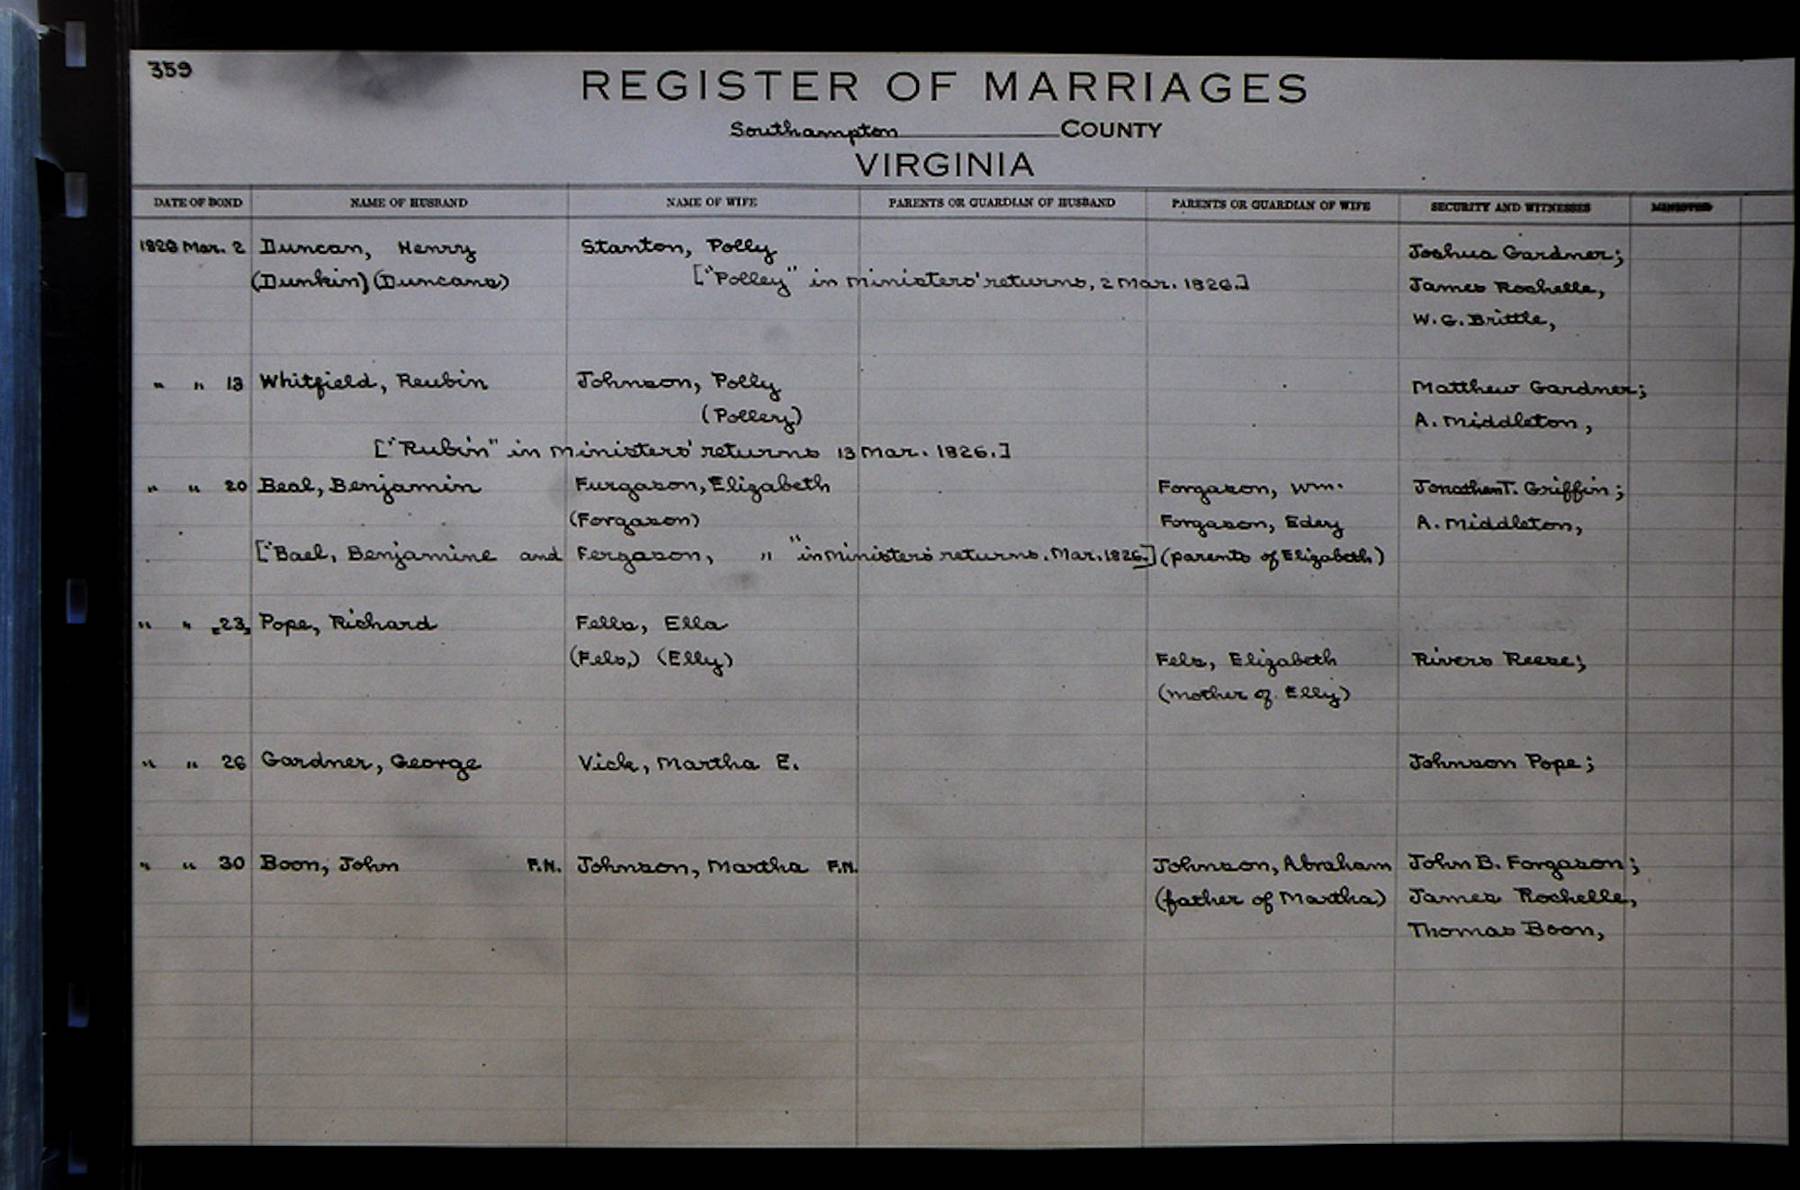 359
REGISTER OF MARRIAGES
Southampton COUNTY
VIRGINIA
DATE OF BOND NAME OF HUSBAND NAME OF WIFE PARENTS OR GUARDIAN OF HUSBAND PARENTS OR GUARDIAN OF WIFE SECURITY AND WITNESSES MINISTER
1826 Mar. 2 Duncan, Henry Stanton, Polly Joshua Gardner;
(Dunkin) (Duncans) ["Polley" in ministers' returns, 2 Mar. 1826.] James Rochelle,
W. G. Brittle,
" " 13 Whitfield, Reubin Johnson, Polly Matthew Gardner;
(Polley) A. Middleton,
["Rubin" in ministers' returns 13 Mar. 1826.]
" " 20 Beal, Benjamin Furgason, Elizabeth Forgason, Wm. Jonathan T. Griffin;
(Forgason) Forgason, Edey A. Middleton,
["Bael, Benjamine and Fergason, " " in ministers' returns. Mar. 1826.] (parents of Elizabeth)
" " 23, Pope, Richard Fells, Ella
(Fels,) (Elly) Fels, Elizabeth Rivers Reese;
(mother of Elly)
" " 26 Gardner, George Vick, Martha E. Johnson Pope;
" " 30 Boon, John F.N. Johnson, Martha F.N. Johnson, Abraham John B. Forgason;
(father of Martha) James Rochelle,
Thomas Boon,